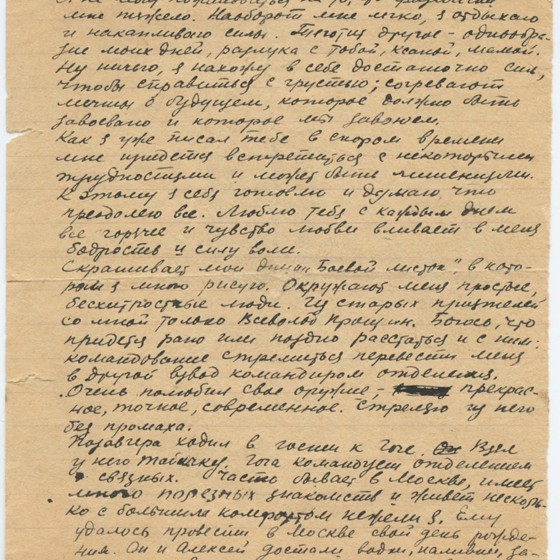 мне тяжело. Наоборот мне легко, я отдыхаю
и накапливаю силы. Тяготит другое - однообра-
зие моих дней, разлука с тобой, Ксаной, мамой.
Ну ничего, я нахожу в себе достаточно сил,
чтобы справиться с грустью; согревают
мечты о будущем, которое должно быть
завоевано и которое мы завоюем.
Как я уже писал тебе в скором времени
мне придется встретиться с некоторыми
трудностями и может быть лишениями.
К этому я себя готовлю и думаю что
преодолею все. Люблю тебя с каждым днем
все горячее и чувство любви вливает в меня
бодрость и силу воли.
Скрашивает мои дни „Боевой листок", в кото-
ром я много рисую. Окружают меня простые,
бесхитростные люди. Из старых приятелей
со мной только Всеволод. Боюсь, что
придется рано или поздно расстаться и с ним:
командование стремиться перевести меня
в другой взвод командиром отделения.
Очень полюбил свое оружие, - прекрас-
ное, точное, современное. Стреляю из него
без промаха.
Позавчера ходил в гости к Гоге. Взял
у него табачку. Гога командует отделением
связных. Часто бывает в Москве, имеет
много полезных знакомств и живет несколь-
ко с большим комфортом нежели я. Ему
удалось провести в Москве свой день рожде-
ния. Он и Алексей достали водки, наливки,